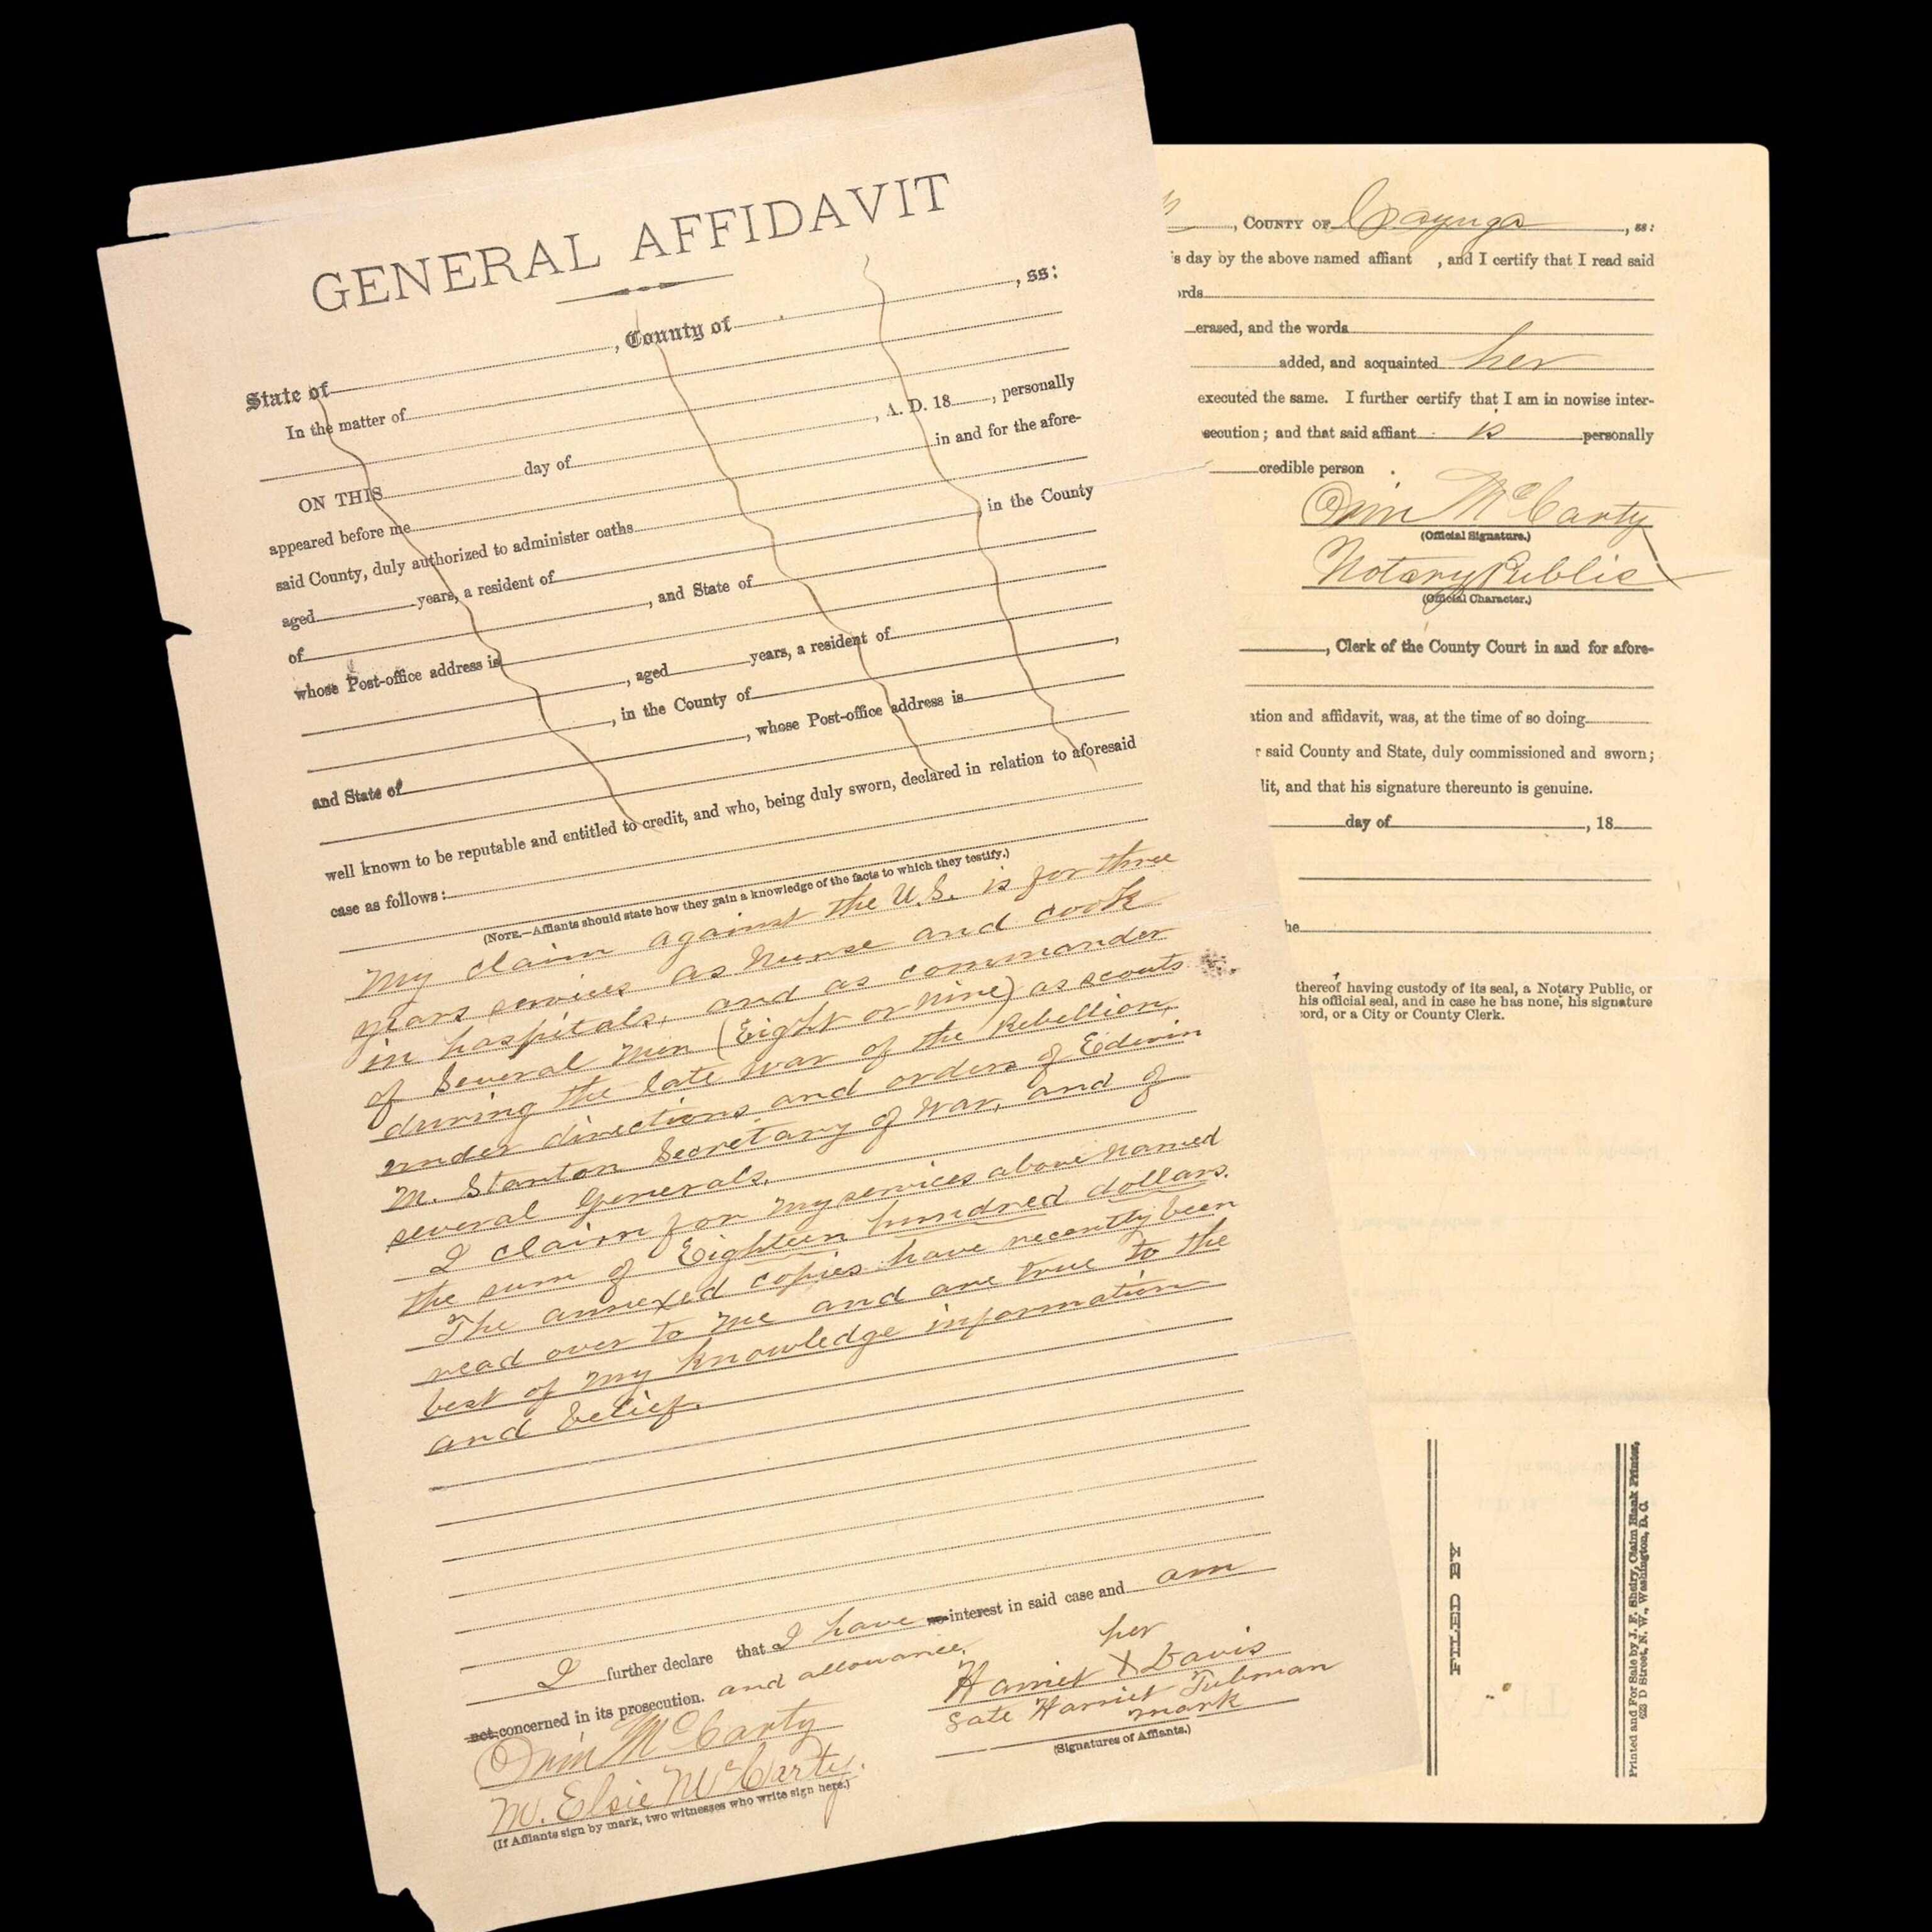 GENERAL AFFIDAVIT
State of , County of , ss:
In the matter of
ON THIS day of , A. D. 18 , personally
appeared before me in and for the afore-
said County, duly authorized to administer oaths
aged years, a resident of in the County
of , and State of
whose Post-office address is
, aged years, a resident of
, in the County of ,
and State of , whose Post-office address is
well known to be reputable and entitled to credit, and who, being duly sworn, declared in relation to aforesaid
case as follows:
(NOTE.—Affiants should state how they gain a knowledge of the facts to which they testify.)
My claim against the U.S. is for three
years services as Nurse and cook
in hospitals, and as commander
of Several Men (Eight or Nine) as scouts
during the late War of the Rebellion,
under directions and orders of Edwin
M. Stanton Secretary of War, and of
several Generals.
I claim for my services above named
the sum of Eighteen hundred dollars.
The annexed copies have recently been
read over to me and are true to the
best of my knowledge information
and belief.
I further declare that I have no interest in said case and am
not concerned in its prosecution. and allowance.
her
Harriet X Davis
Late Harriet Tubman
mark
(Signatures of Affiants.)
Orin McCarty
M. Elsie McCarty.
(If Affiants sign by mark, two witnesses who write sign here.)
, COUNTY OF Cayuga , ss:
s day by the above named affiant , and I certify that I read said
ords
erased, and the words
added, and acquainted her
executed the same. I further certify that I am in nowise inter-
secution; and that said affiant is personally
credible person
Orin McCarty
(Official Signature.)
Notary Public
(Official Character.)
, Clerk of the County Court in and for afore-
ation and affidavit, was, at the time of so doing
r said County and State, duly commissioned and sworn;
lit, and that his signature thereunto is genuine.
day of , 18
he
thereof having custody of its seal, a Notary Public, or
his official seal, and in case he has none, his signature
cord, or a City or County Clerk.
FILED BY
Printed and For Sale by J. F. Sheiry, Claim Blank Printer,
623 D Street, N. W., Washington, D. C.